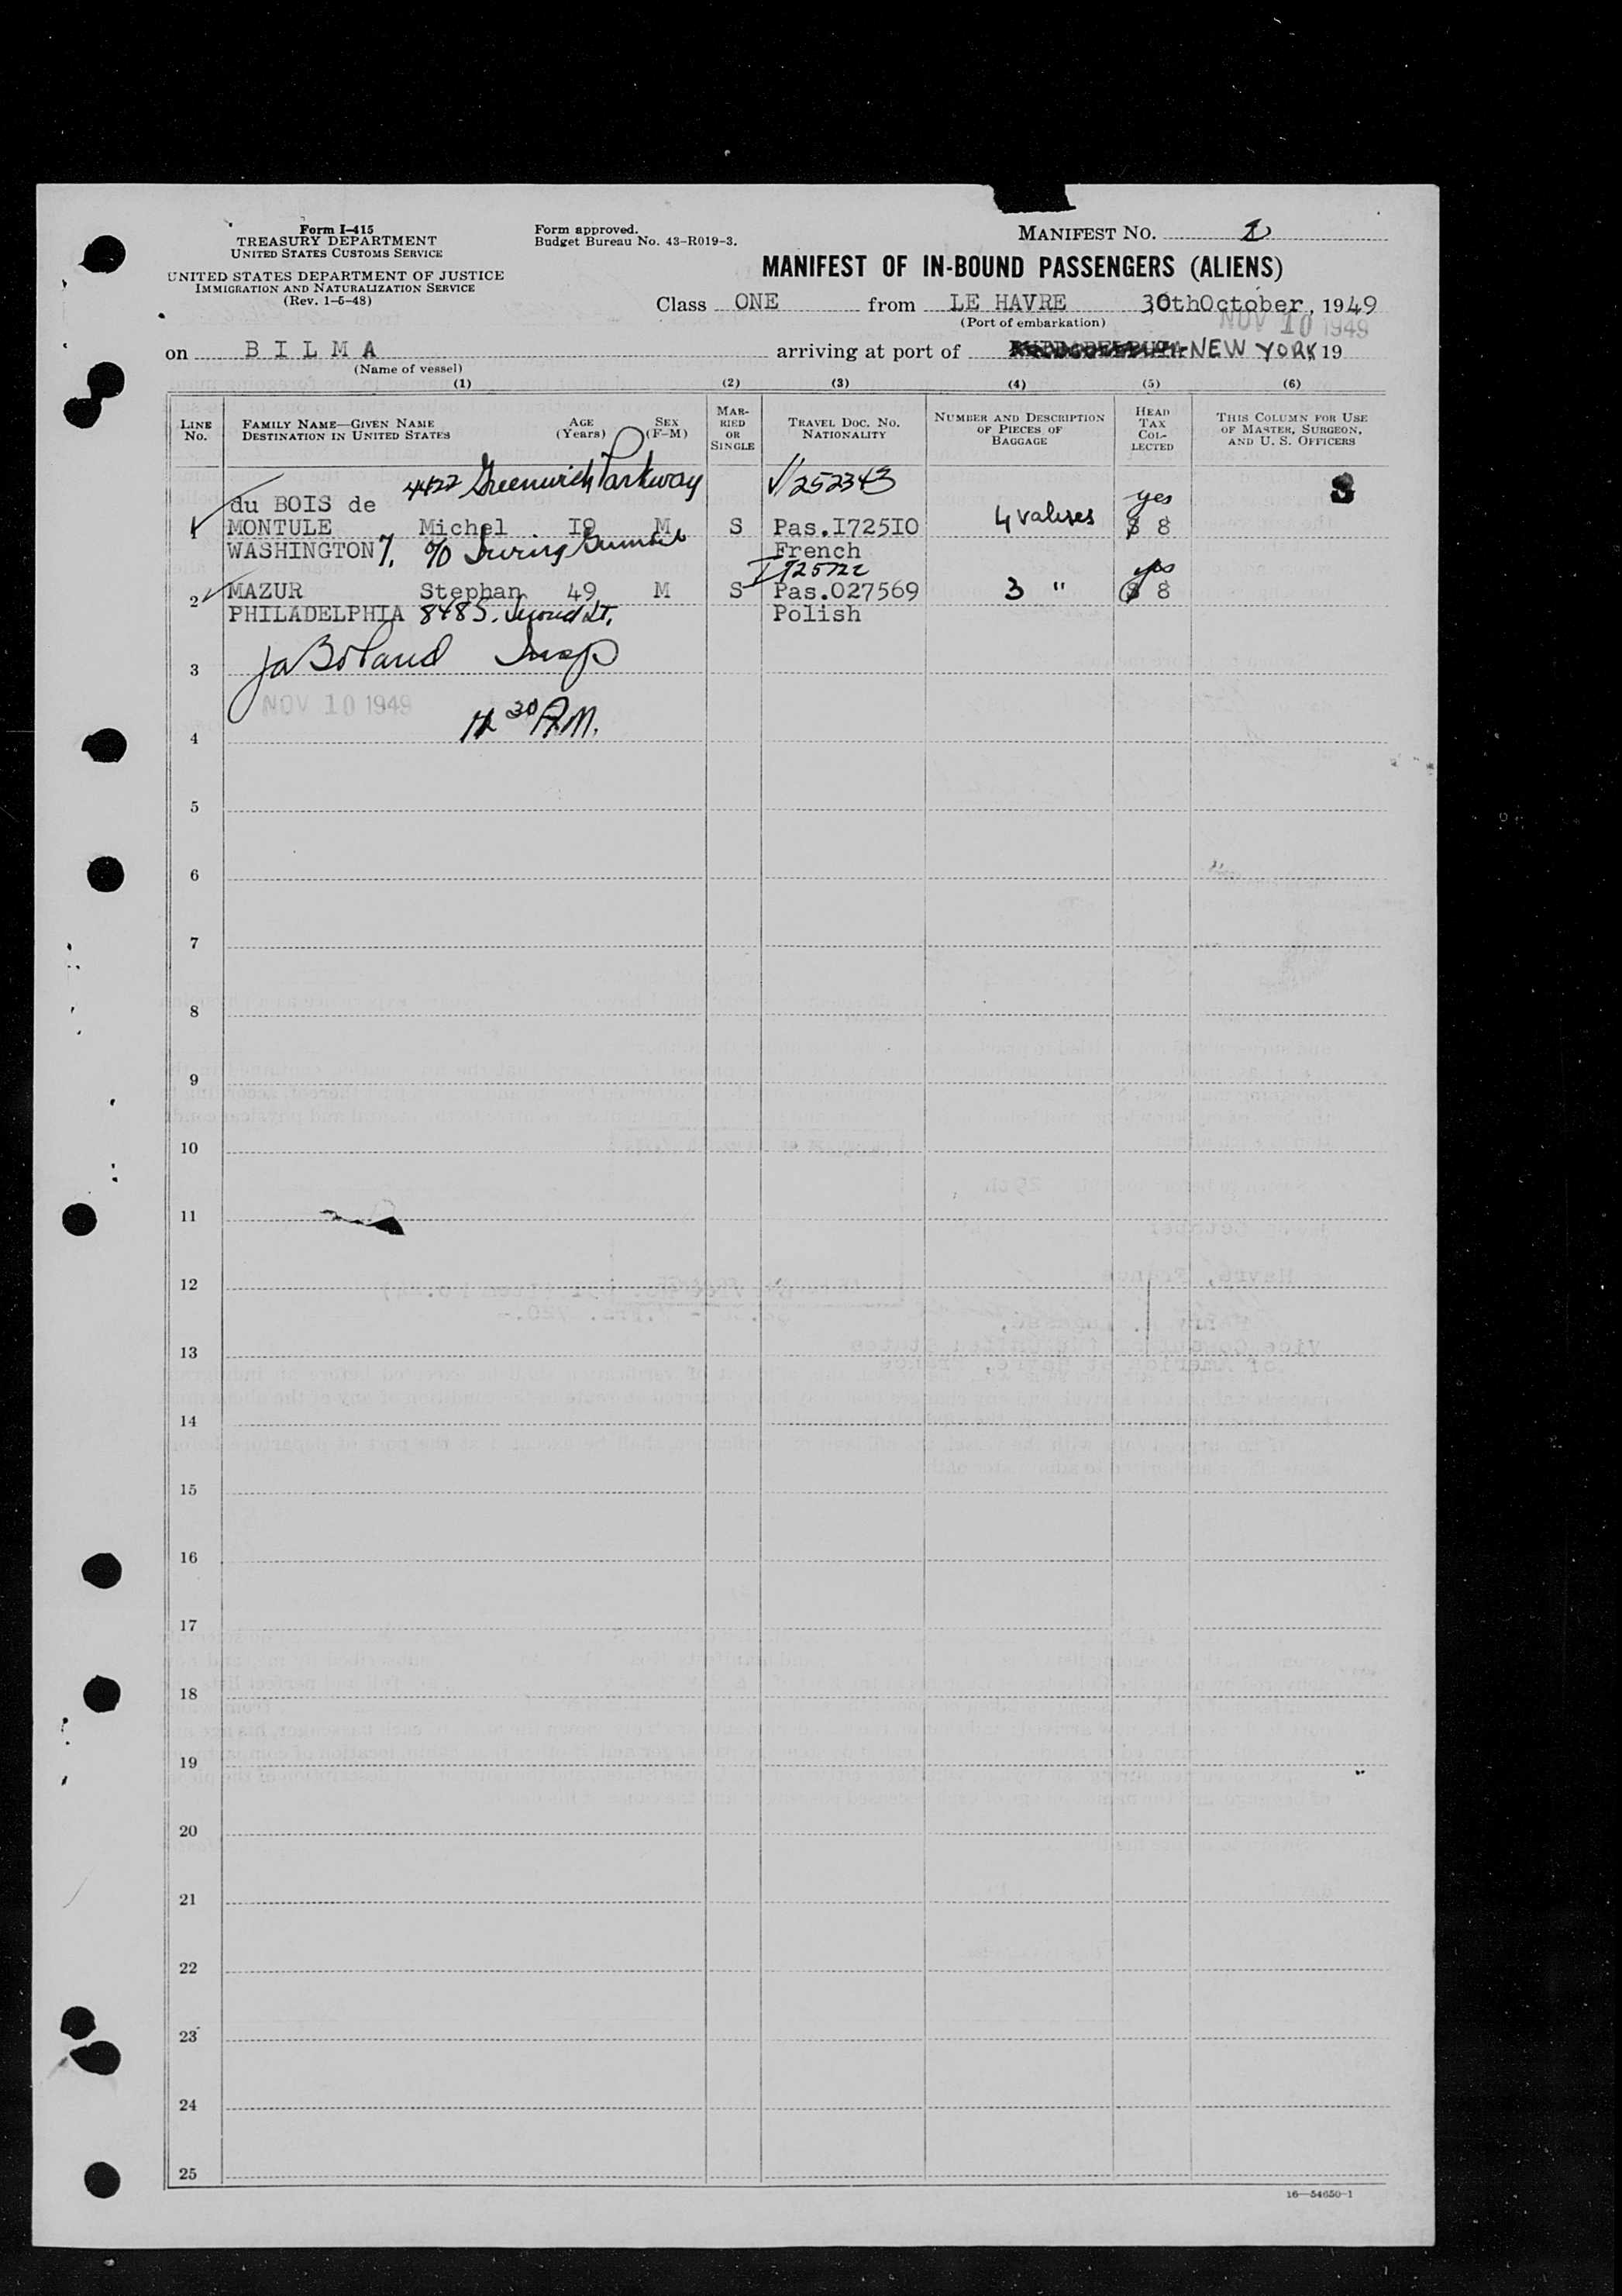 Form I-415
TREASURY DEPARTMENT
UNITED STATES CUSTOMS SERVICE
UNITED STATES DEPARTMENT OF JUSTICE
IMMIGRATION AND NATURALIZATION SERVICE
(Rev. 1-5-48)
Form approved.
Budget Bureau No. 43-R019-3.
MANIFEST NO.
MANIFEST OF IN-BOUND PASSENGERS (ALIENS)
Class ONE from LE HAVRE 30thOctober, 1949
(Port of embarkation)
NOV 10 1949
on B I L M A arriving at port of NEW YORK 19
(Name of vessel)
(1) (2) (3) (4) (5) (6)
LINE No.
FAMILY NAME—GIVEN NAME AGE (Years) SEX (F-M)
DESTINATION IN UNITED STATES
MARRIED OR SINGLE
TRAVEL DOC. NO. NATIONALITY
NUMBER AND DESCRIPTION OF PIECES OF BAGGAGE
HEAD TAX COLLECTED
THIS COLUMN FOR USE OF MASTER, SURGEON, AND U. S. OFFICERS
4422 Greenwich Parkway V/252343
du BOIS de yes
1 MONTULE Michel I9 M S Pas.I72510 4 valises $ 8
WASHINGTON 7, c/o Irving French
yes
2 MAZUR Stephan 49 M S Pas.027569 3 " $ 8
PHILADELPHIA 848 S. Second St. Polish
3 Insp
NOV 10 1949
30 AM.
4
5
6
7
8
9
10
11
12
13
14
15
16
17
18
19
20
21
22
23
24
25
16—54650-1